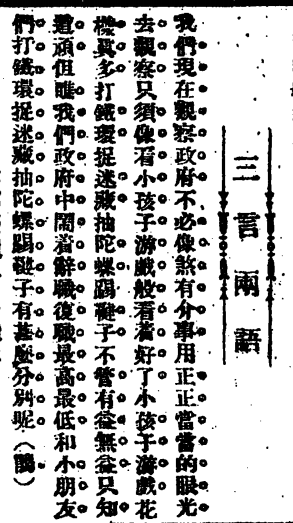 三言兩語
我們現在觀察政府不必像煞有介事用正正當當的眼光
去觀察只須像看小孩子游戲般看着好了小孩子游戲花
樣眞多打鐵環捉迷藏抽陀螺踢毽子不管有益無益只知
道頑但瞧我們政府中鬧着辭職復職最高最低和小朋友
們打鐵環捉迷藏抽陀螺踢毽子有甚麽分別呢（鵑）